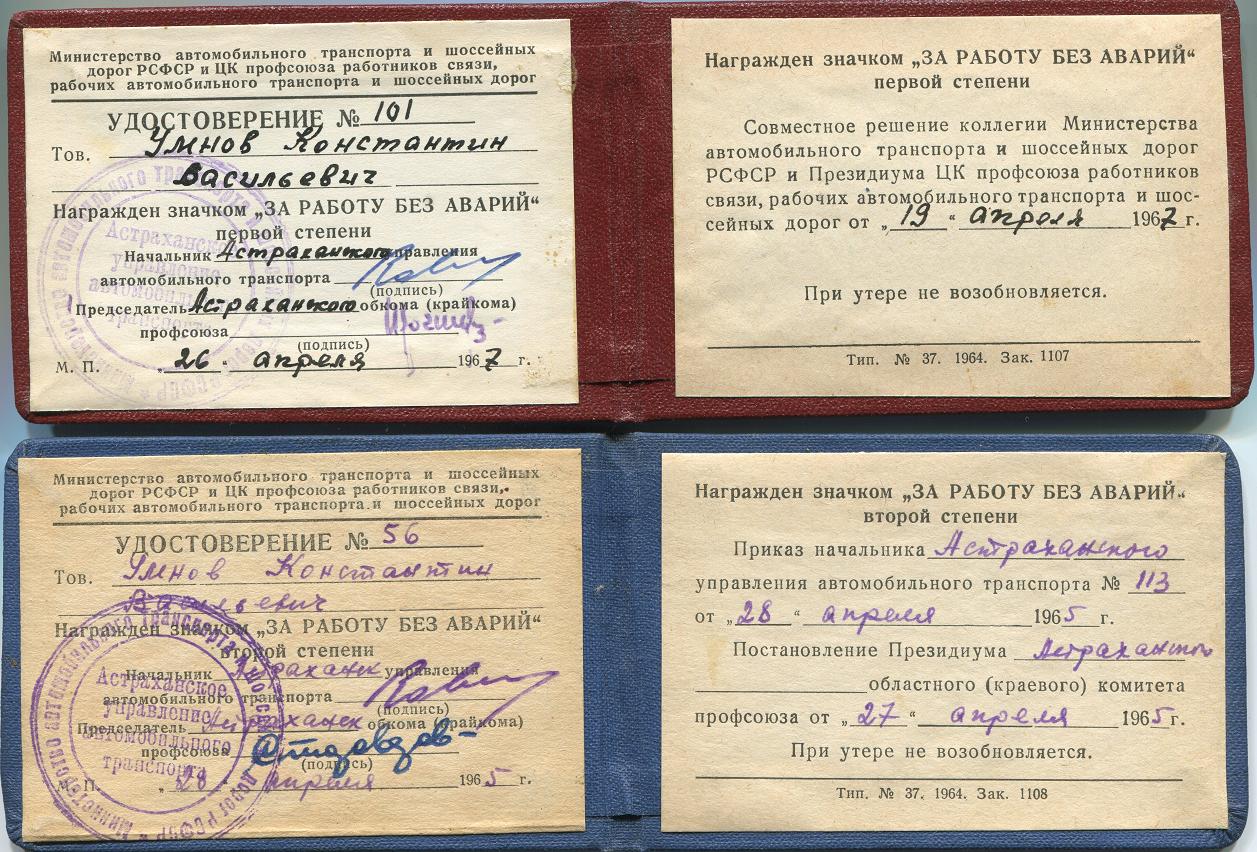 Министерство автомобильного транспорта и шоссейных
дорог РСФСР и ЦК профсоюза работников связи,
рабочих автомобильного транспорта и шоссейных дорог
УДОСТОВЕРЕНИЕ № 101
Тов. Умнов Константин
Васильевич
Награжден значком „ЗА РАБОТУ БЕЗ АВАРИЙ“
первой степени
Начальник Астраханского управления
автомобильного транспорта
(подпись)
Председатель Астраханского обкома (крайкома)
профсоюза
(подпись)
М. П. „26“ апреля 1967 г.
Астраханское
управление
автомобильного
транспорта
Награжден значком „ЗА РАБОТУ БЕЗ АВАРИЙ“
первой степени
Совместное решение коллегии Министерства
автомобильного транспорта и шоссейных дорог
РСФСР и Президиума ЦК профсоюза работников
связи, рабочих автомобильного транспорта и шос-
сейных дорог от „19“ апреля 1967 г.
При утере не возобновляется.
Тип. № 37. 1964. Зак. 1107
Министерство автомобильного транспорта и шоссейных
дорог РСФСР и ЦК профсоюза работников связи,
рабочих автомобильного транспорта и шоссейных дорог
УДОСТОВЕРЕНИЕ № 56
Тов. Умнов Константин
Васильевич
Награжден значком „ЗА РАБОТУ БЕЗ АВАРИЙ“
второй степени
Начальник Астраханск управления
автомобильного транспорта
(подпись)
Председатель Астраханск обкома (крайкома)
профсоюза
(подпись)
М. П. „28“ апреля 1965 г.
Астраханское
управление
автомобильного
транспорта
Награжден значком „ЗА РАБОТУ БЕЗ АВАРИЙ“
второй степени
Приказ начальника Астраханского
управления автомобильного транспорта № 113
от „28“ апреля 1965 г.
Постановление Президиума Астраханского
областного (краевого) комитета
профсоюза от „27“ апреля 1965 г.
При утере не возобновляется.
Тип. № 37. 1964. Зак. 1108